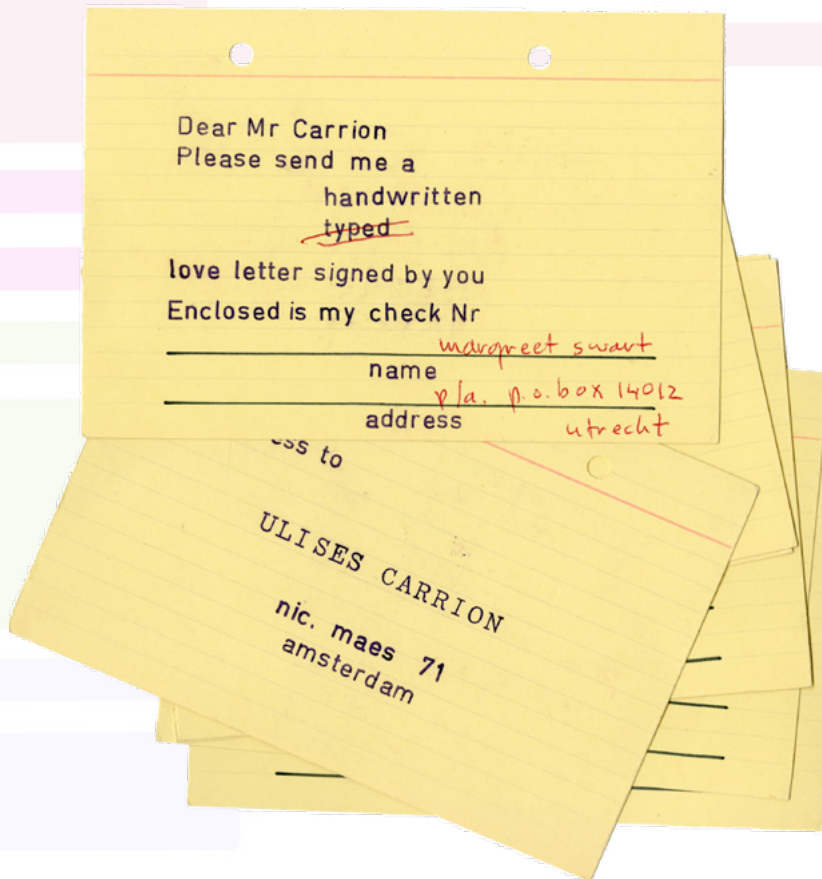 Dear Mr Carrion
Please send me a
handwritten
typed
love letter signed by you
Enclosed is my check Nr
margreet swart
name
p/a. p.o.box 14012
address utrecht
ess to
ULISES CARRION
nic. maes 71
amsterdam